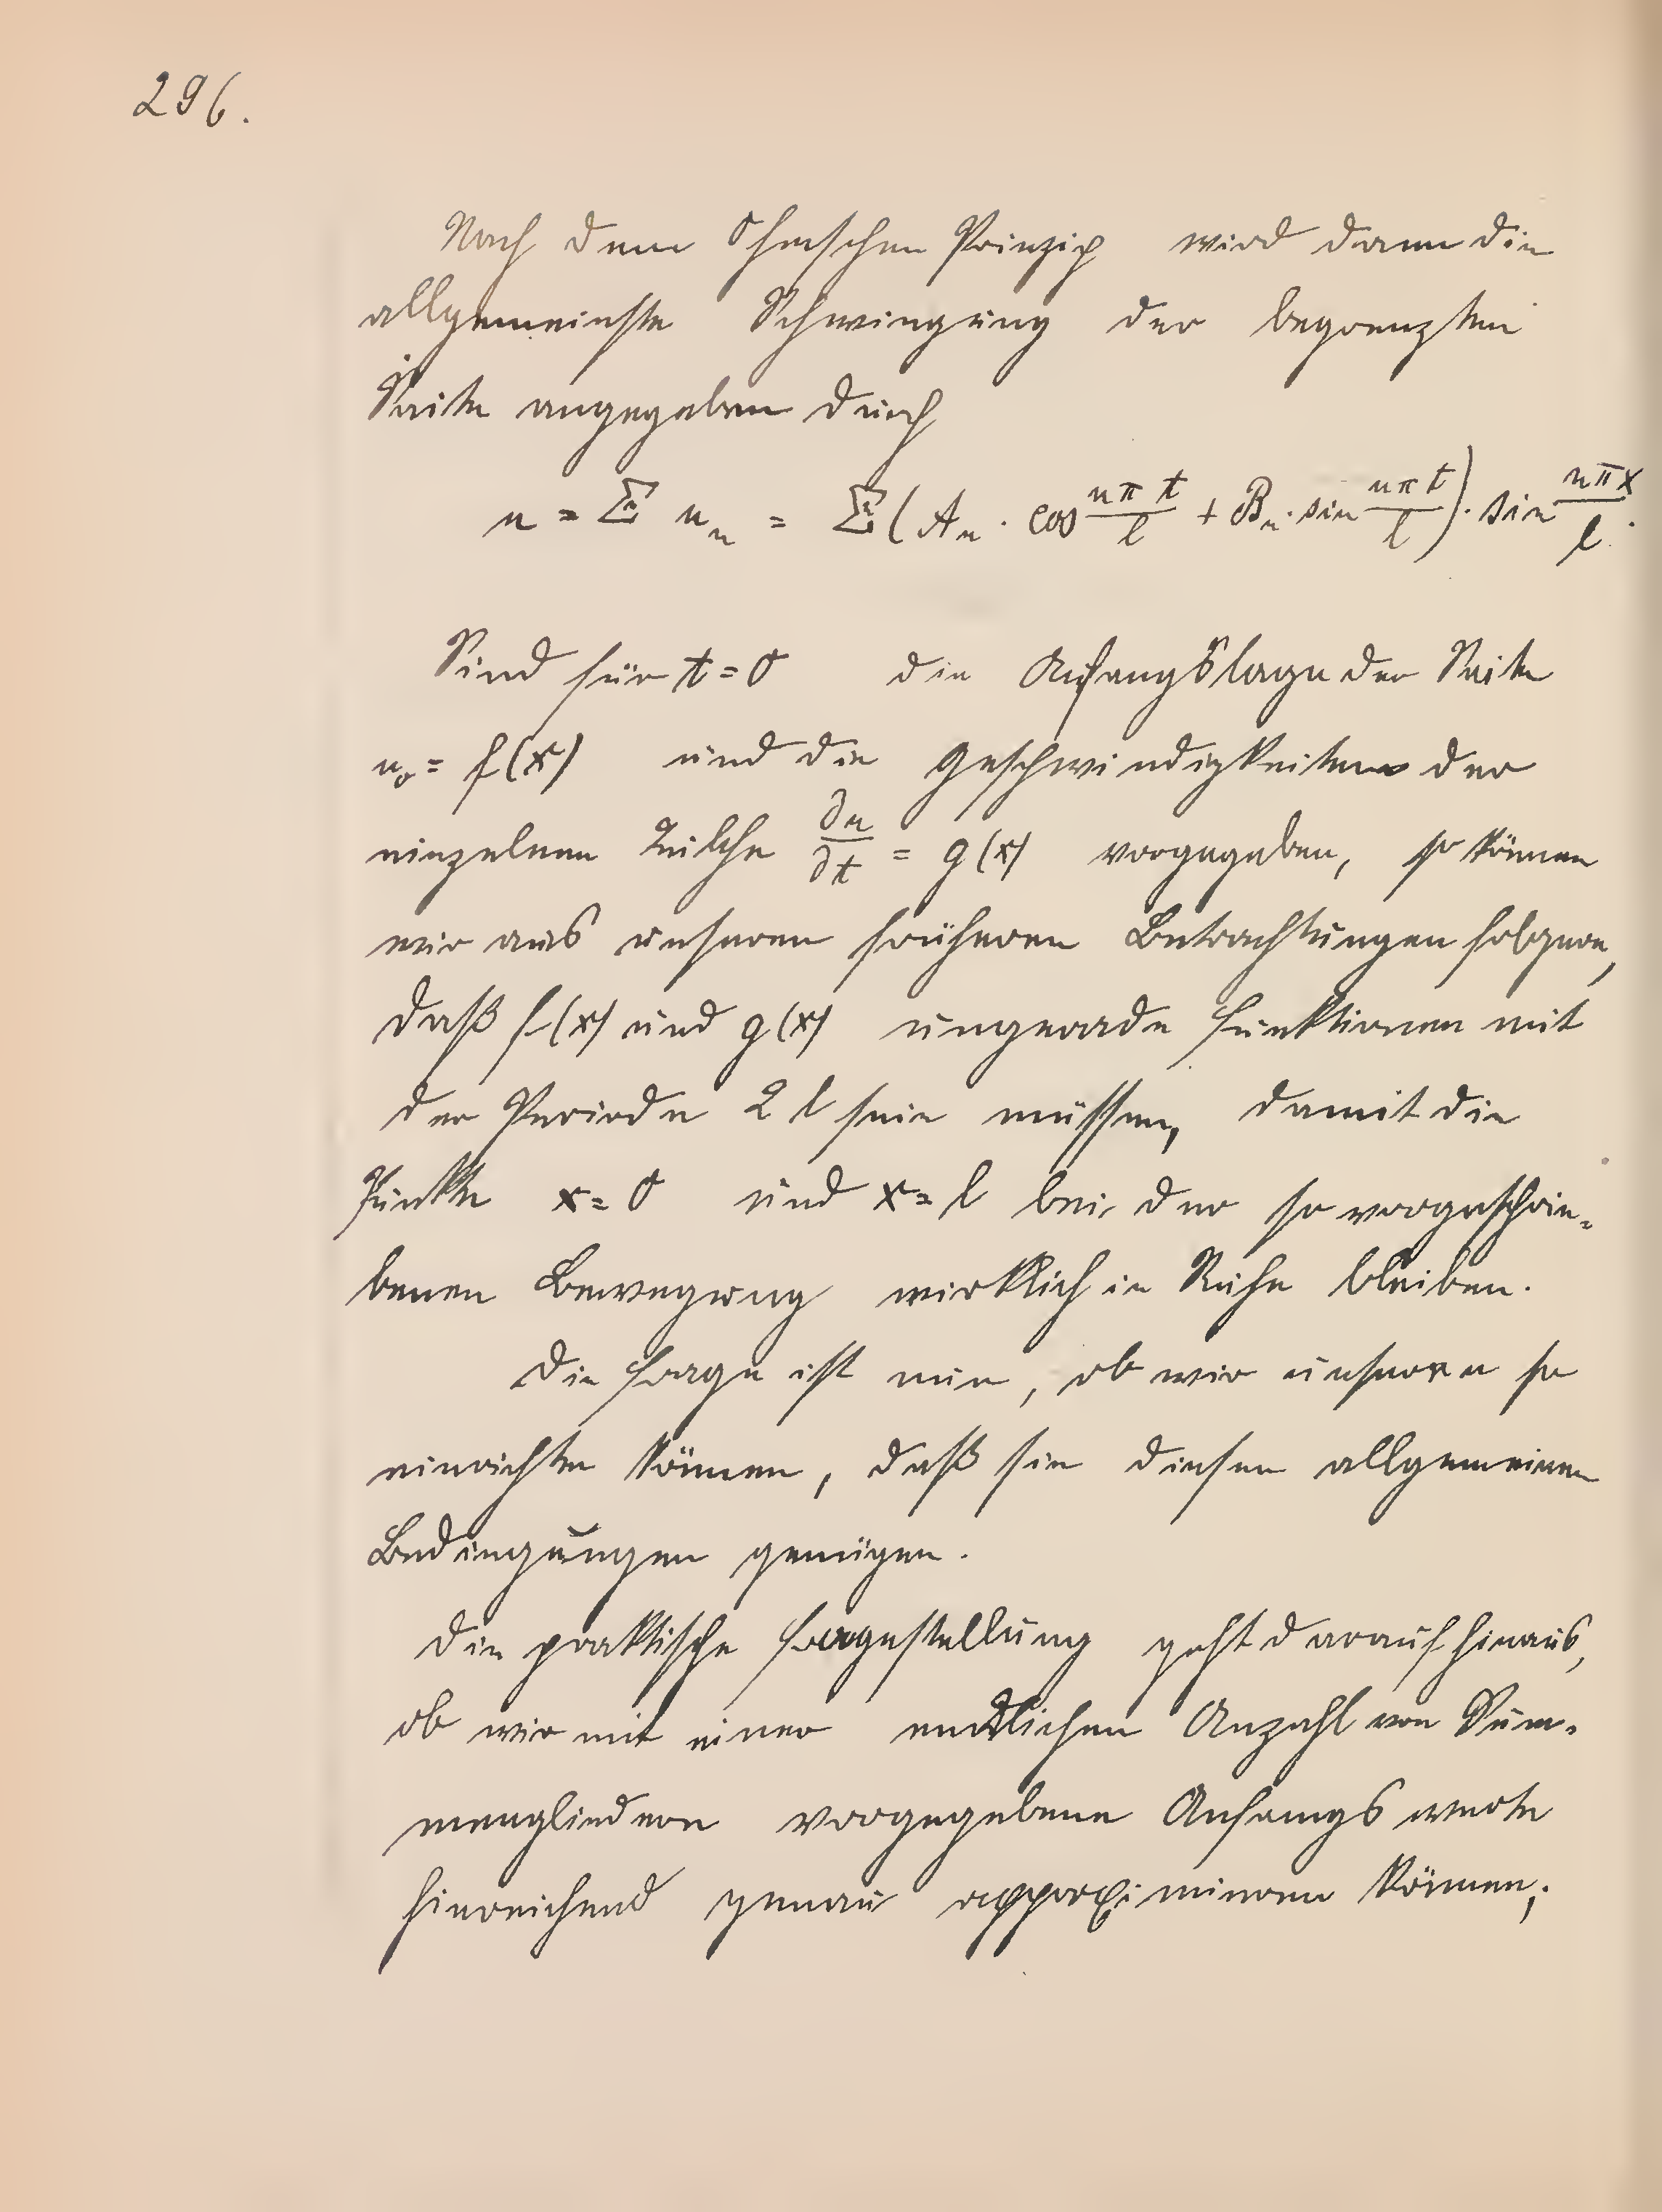 296.
Nach dem Ohmschen Prinzip wird dann die
allgemeinste Schwingung der begrenzten
Saite angegeben durch
u = Σ uₙ = Σ(Aₙ · cos nπt/l + Bₙ · sin nπt/l) · sin nπx/l.
Sind für t = 0 die Anfangslage der Saite
u₀ = f(x) und die Geschwindigkeiten der
einzelnen Teilche ∂u/∂t = g(x) vorgegeben, so können
wir aus unseren früheren Betrachtungen folgern,
daß f(x) und g(x) ungerade Funktionen mit
der Periode 2l sein müssen, damit die
Punkte x = 0 und x = l bei der so vorgeschrie-
benen Bewegung wirklich in Ruhe bleiben.
Die Frage ist nun, ob wir unsere u so
einrichten können, daß sie diesen allgemeinen
Bedingungen genügen.
Die praktische Fragestellung geht darauf hinaus,
ob wir mit einer endlichen Anzahl von Sum-
mengliedern vorgegebene Anfangswerte
hinreichend genau approximieren können;